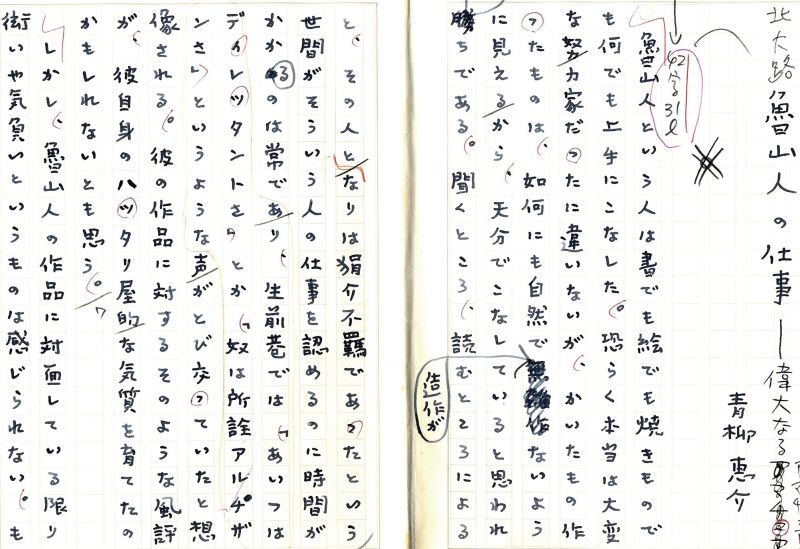 北大路魯山人の仕事―偉大なる
青柳恵介
42字31ℓ
魯山人という人は書でも絵でも焼きもので
も何でも上手にこなした。恐らく本当は大変
な努力家だったに違いないが、かいたもの作
ったものは、如何にも自然で造作がないよう
に見えるから、天分でこなしていると思われ
勝ちである。聞くところ、読むところによる
と、その人となりは狷介不羈であったという
世間がそういう人の仕事を認めるのに時間が
かかるのは常であり、生前巷では「あいつは
ディレッタントさ」とか「奴は所詮アルチザ
ンさ」というような声がとび交っていたと想
像される。彼の作品に対するそのような風評
が、彼自身のハッタリ屋的な気質を育てたの
かもしれないとも思う。
しかし、魯山人の作品に対面している限り
衒いや気負いというものは感じられない。も